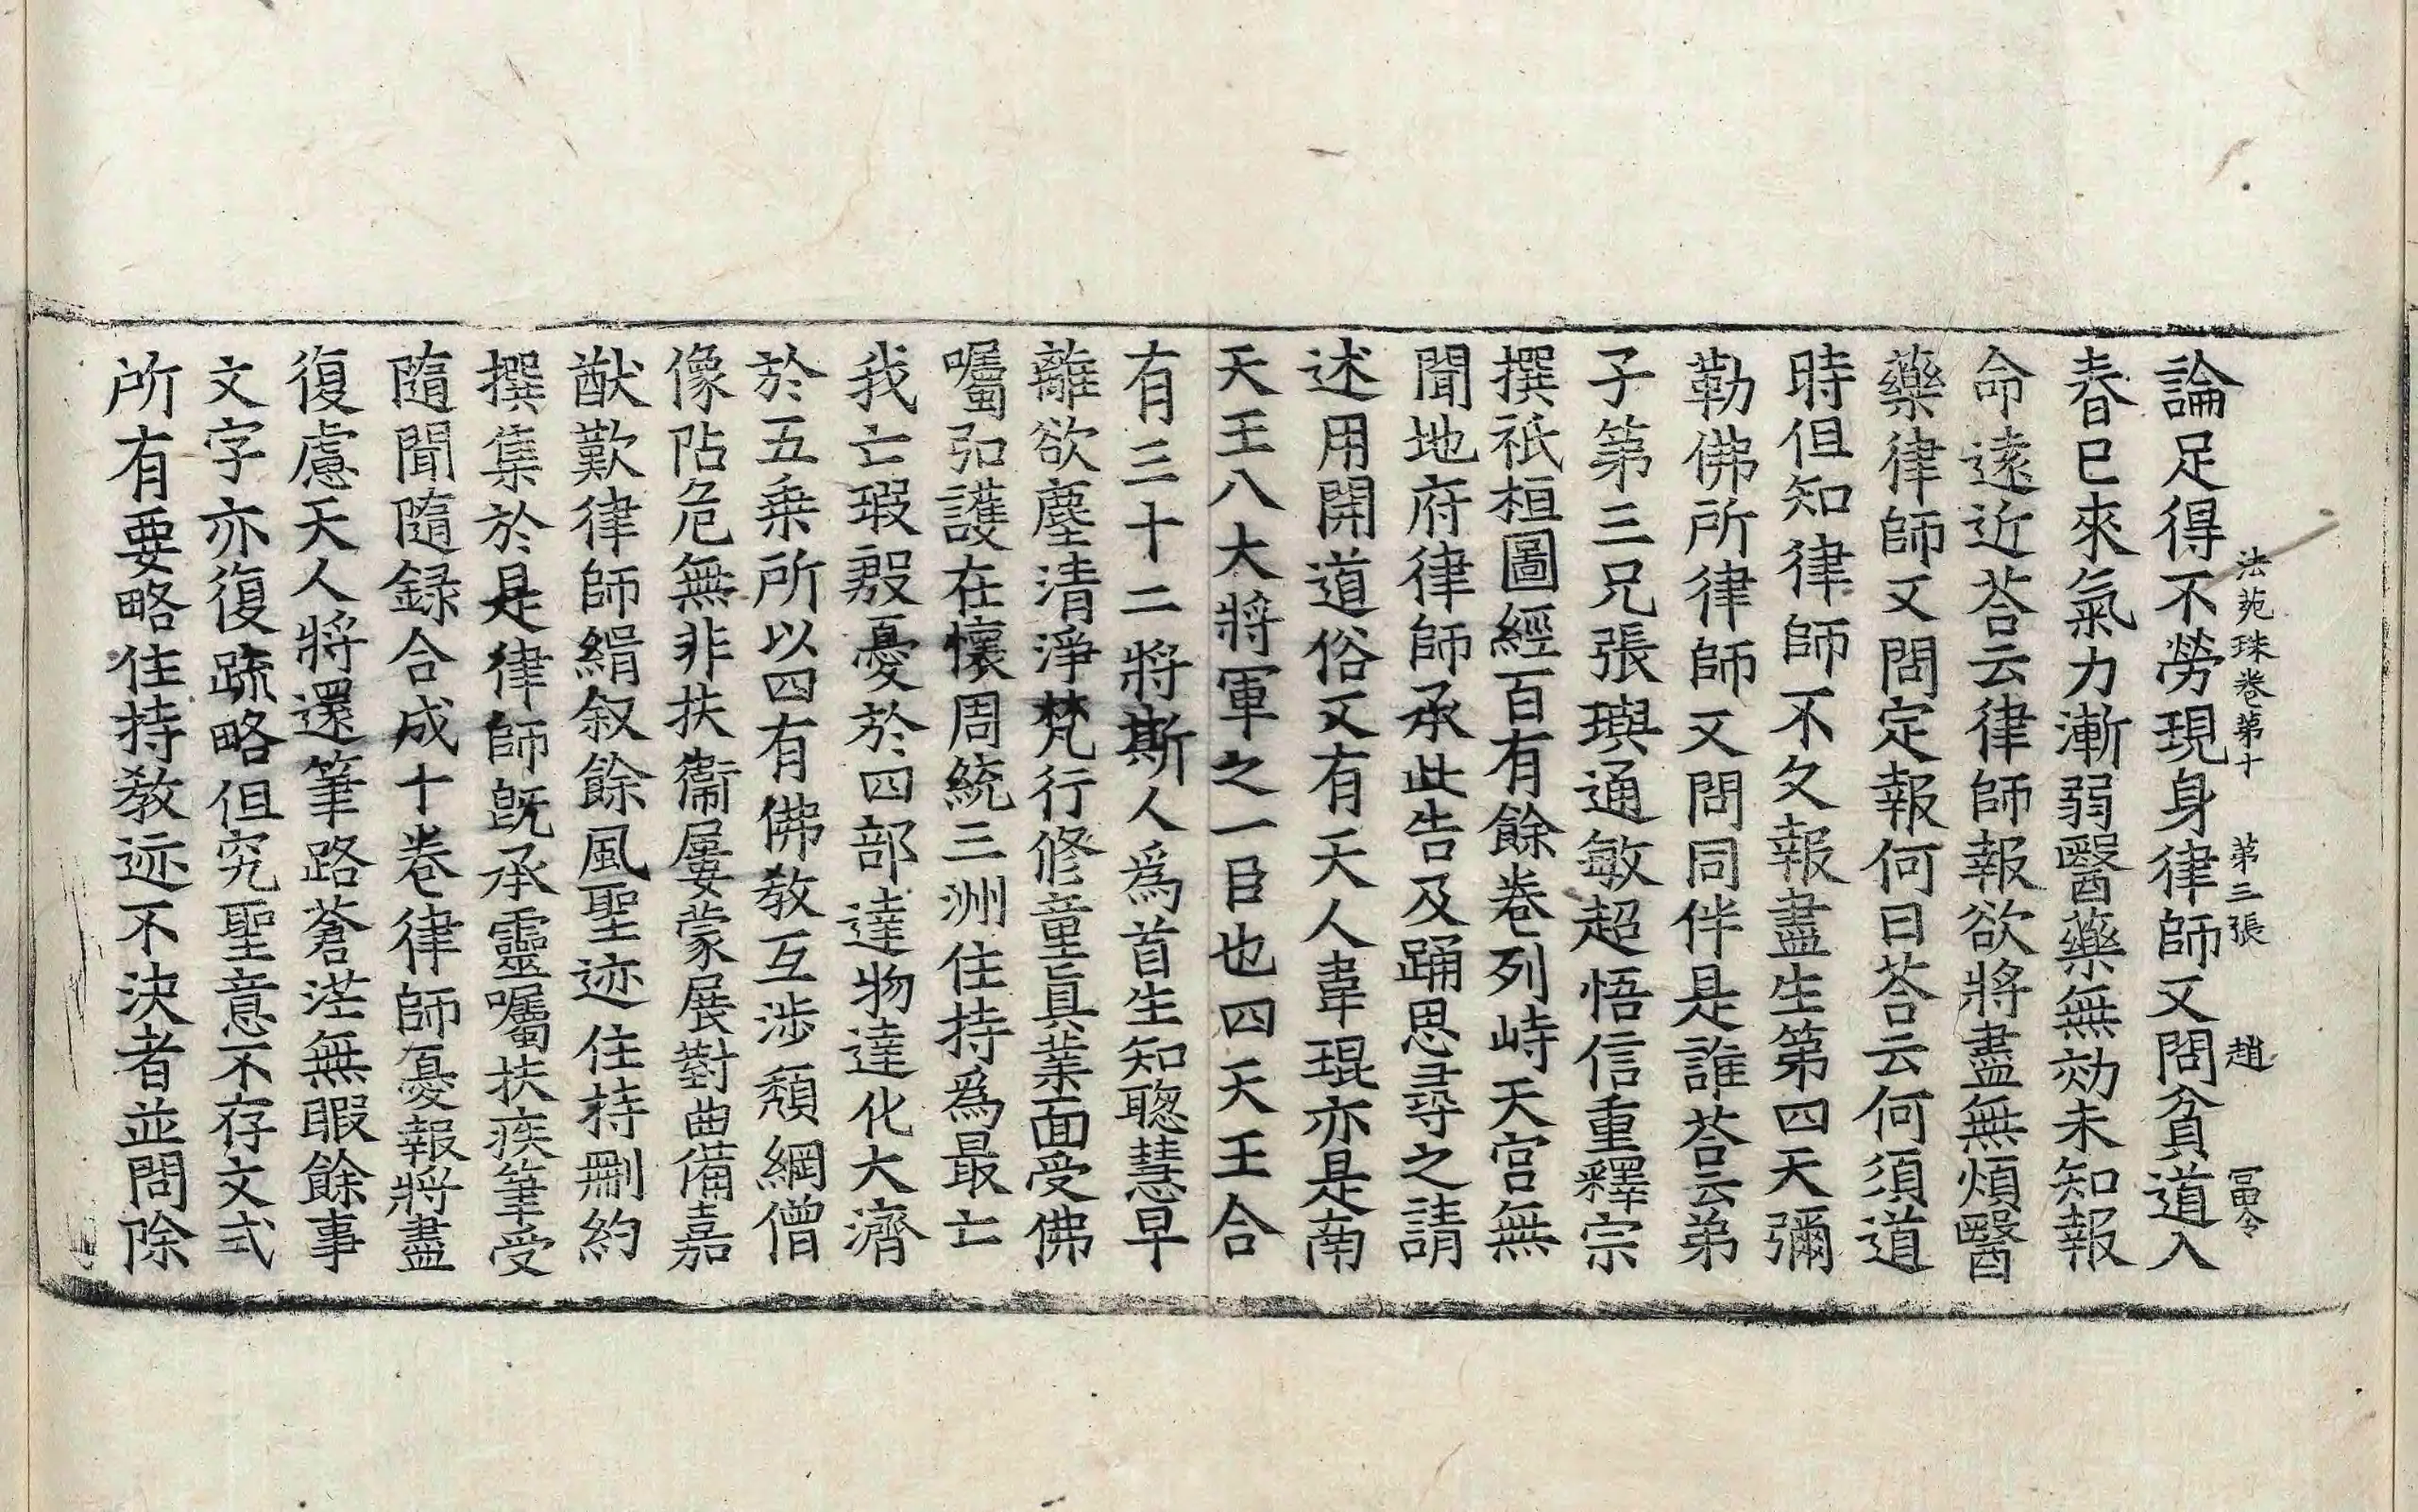 法苑珠卷第十 第三張 趙 富令
論足得不勞現身律師又問貧道入
春已來氣力漸弱醫藥無効未知報
命遠近荅云律師報欲將盡無煩醫
藥律師又問定報何日荅云何須道
時但知律師不久報盡生第四天彌
勒佛所律師又問同伴是誰荅云弟
子第三兄張璵通敏超悟信重釋宗
撰祇桓圖經百有餘卷列峙天宫無
聞地府律師承此告及踊思尋之請
述用開道俗又有天人韋琨亦是南
天王八大將軍之一臣也四天王合
有三十二將斯人爲首生知聦慧早
離欲塵清淨梵行修童眞業面受佛
囑弘護在懷周統三洲住持爲最亡
我亡瑕殷憂於四部達物達化大濟
於五乗所以四有佛教互涉頽綱僧
像阽危無非扶衞屢蒙展對曲備嘉
猷歎律師緝叙餘風聖迹住持删約
撰集於是律師旣承靈囑扶疾筆受
隨聞隨録合成十卷律師憂報將盡
復慮天人將還筆路蒼茫無暇餘事
文字亦復踈略但究聖意不存文式
所有要略住持教迹不決者並問除